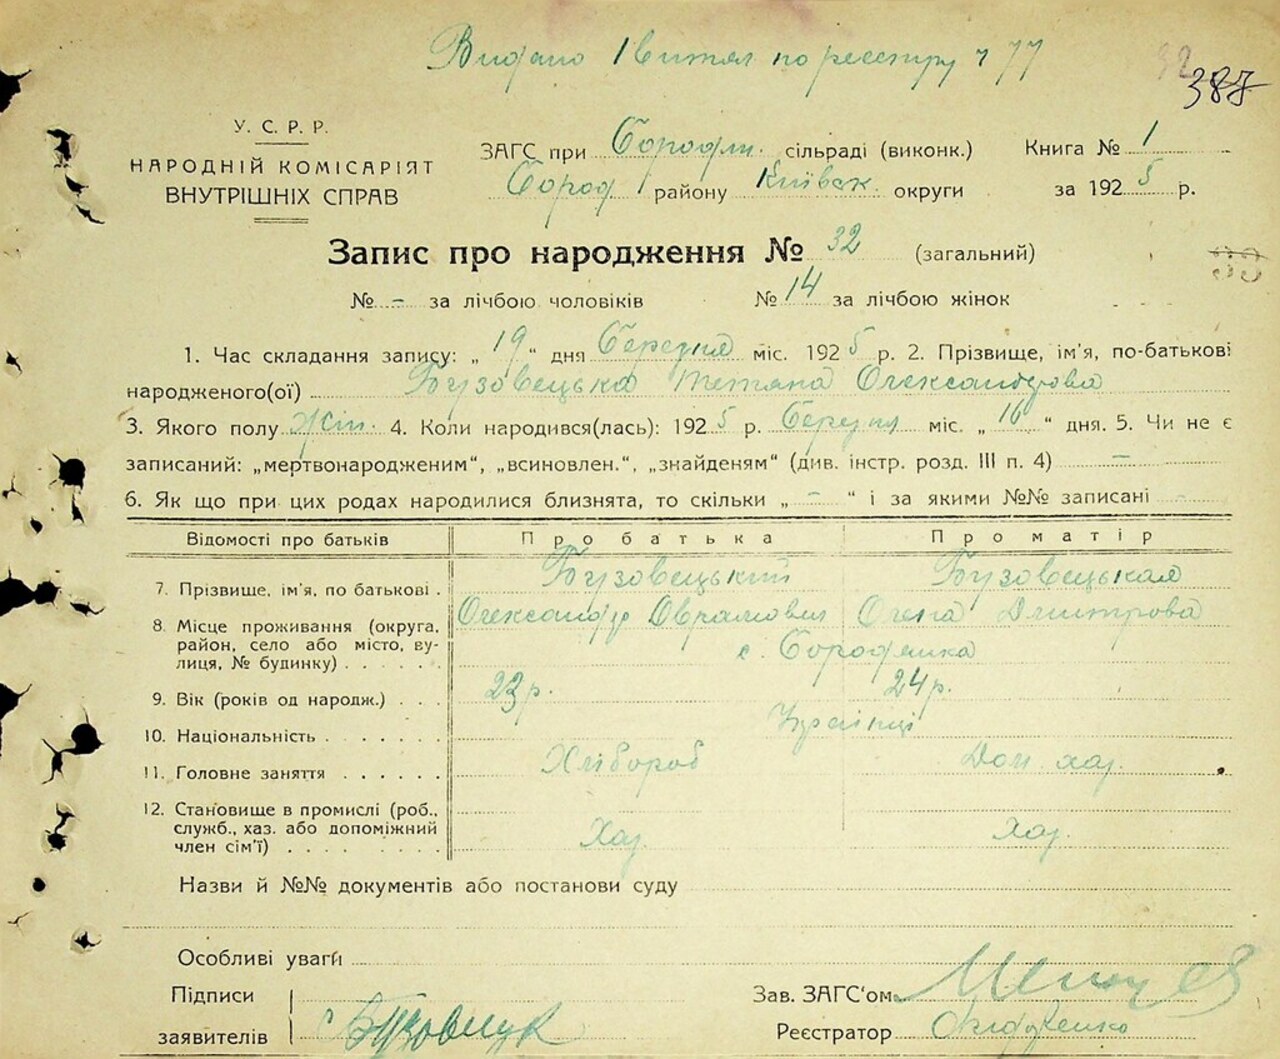 Видано 1 витяг по реестру ч 77
387
У. С. Р. Р.
НАРОДНІЙ КОМІСАРІЯТ
ВНУТРІШНІХ СПРАВ
ЗАГС при Бородян. сільраді (виконк.) Книга № 1
Бород району Київськ. округи за 1925 р.
Запис про народження № 32 (загальний)
№ - за лічбою чоловіків № 14 за лічбою жінок
1. Час складання запису: „ 19 “ дня Березня міс. 1925 р. 2. Прізвище, ім'я, по-батькові
народженого(ої) Бузовецька Тетяна Олександрова
3. Якого полу Жін. 4. Коли народився(лась): 1925 р. Березня міс. „ 16 “ дня. 5. Чи не є
записаний: „мертвонародженим“, „всиновлен.“, „знайденям“ (див. інстр. розд. III п. 4) —
6. Як що при цих родах народилися близнята, то скільки „ - “ і за якими №№ записані -
Відомості про батьків Про батька Про матір
7. Прізвище, ім'я, по батькові . Бузовецький Бузовецькая
Олександр Оврамович Олена Дмитрова
8. Місце проживання (округа, район, село або місто, вулиця, № будинку) . . . . . с. Бородянка
9. Вік (років од народж.) . . . 23 р. 24 р.
10. Національність . . . . . . Українці
11. Головне заняття . . . . . . Хлібороб Дом. хаз.
12. Становище в промислі (роб., служб., хаз. або допоміжний член сім'ї) . . . . . . . . Хаз. Хаз.
Назви й №№ документів або постанови суду
Особливі уваги
Підписи
заявителів
Зав. ЗАГС'ом
Реєстратор